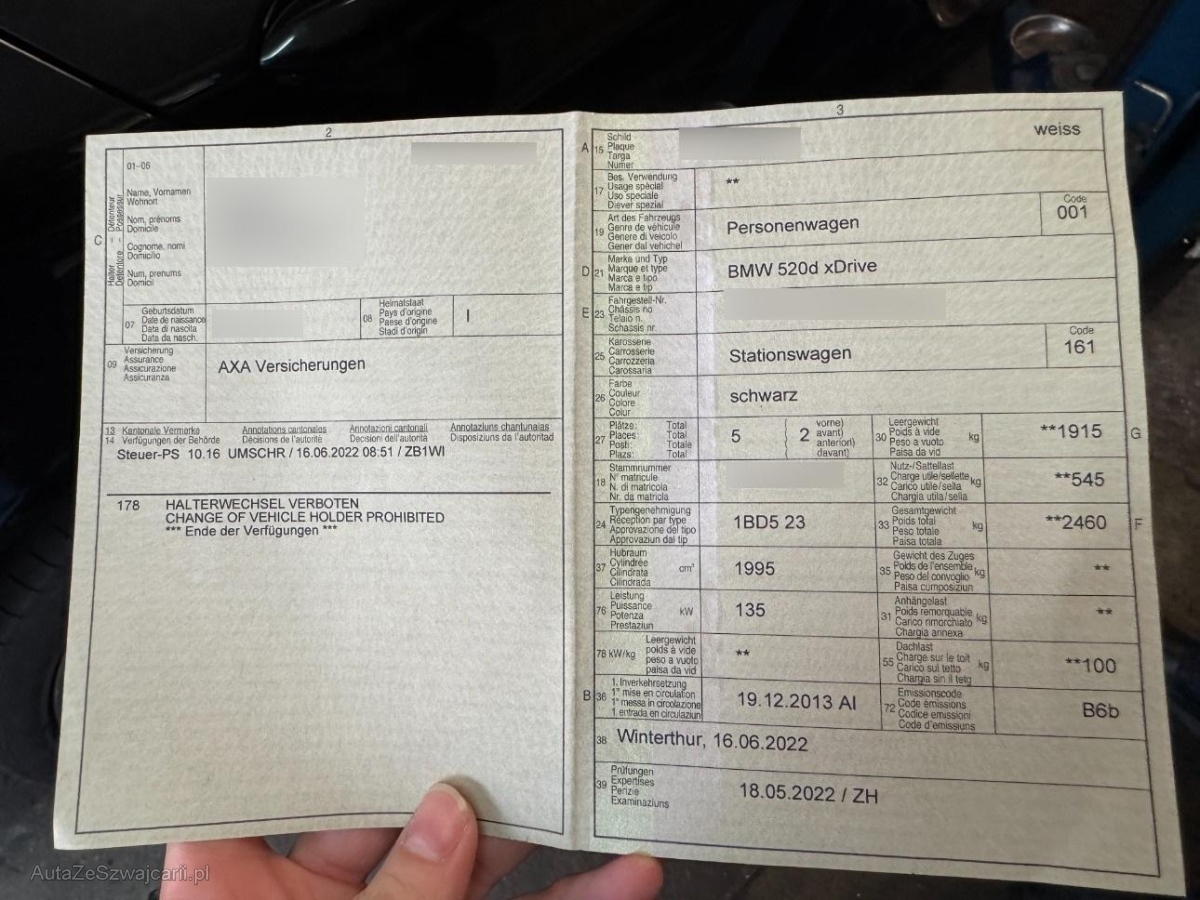 2
01-06
C
Halter
Détenteur
Detentore
Possessur
Name, Vornamen
Wohnort
Nom, prénoms
Domicile
Cognome, nomi
Domicilio
Num, prenums
Domicil
07
Geburtsdatum
Date de naissance
Data di nascita
Data da nasch.
08
Heimatstaat
Pays d'origine
Paese d'origine
Stadi d'origin
I
09
Versicherung
Assurance
Assicurazione
Assicuranza
AXA Versicherungen
13 Kantonale Vermerke Annotations cantonales Annotazioni cantonali Annotaziuns chantunalas
14 Verfügungen der Behörde Décisions de l'autorité Decisioni dell'autorità Disposiziuns da l'autoritad
Steuer-PS 10.16 UMSCHR / 16.06.2022 08:51 / ZB1WI
178 HALTERWECHSEL VERBOTEN
CHANGE OF VEHICLE HOLDER PROHIBITED
*** Ende der Verfügungen ***
3
A 15
Schild
Plaque
Targa
Numer
weiss
17
Bes. Verwendung
Usage spécial
Uso speciale
Diever spezial
**
19
Art des Fahrzeugs
Genre de véhicule
Genere di veicolo
Gener dal vehichel
Personenwagen
Code
001
D 21
Marke und Typ
Marque et type
Marca e tipo
Marca e tip
BMW 520d xDrive
E 23
Fahrgestell-Nr.
Châssis no
Telaio n.
Schassis nr.
25
Karosserie
Carrosserie
Carrozzeria
Carossaria
Stationswagen
Code
161
26
Farbe
Couleur
Colore
Colur
schwarz
27
Plätze: Total
Places: Total
Posti: Totale
Plazs: Total
5
2
vorne)
avant)
anteriori)
davant)
30
Leergewicht
Poids à vide
Peso a vuoto
Paisa da vid
kg
**1915
G
18
Stammnummer
N° matricule
N. di matricola
Nr. da matricla
32
Nutz-/Sattellast
Charge utile/sellette
Carico utile/sella
Chargia utila/sella
kg
**545
24
Typengenehmigung
Réception par type
Approvazione del tipo
Approvaziun dal tip
1BD5 23
33
Gesamtgewicht
Poids total
Peso totale
Paisa totala
kg
**2460
F
37
Hubraum
Cylindrée
Cilindrata
Cilindrada
cm³
1995
35
Gewicht des Zuges
Poids de l'ensemble
Peso del convoglio
Paisa cumposiziun
kg
**
76
Leistung
Puissance
Potenza
Prestaziun
kW
135
31
Anhängelast
Poids remorquable
Carico rimorchiato
Chargia annexa
kg
**
78 kW/kg
Leergewicht
poids à vide
peso a vuoto
paisa da vid
**
55
Dachlast
Charge sur le toit
Carico sul tetto
Chargia sin il tetg
kg
**100
B 36
1. Inverkehrsetzung
1re mise en circulation
1a messa in circolazione
1. entrada en circulaziun
19.12.2013 AI
72
Emissionscode
Code émissions
Codice emissioni
Code d'emissiuns
B6b
38
Winterthur, 16.06.2022
39
Prüfungen
Expertises
Perizie
Examinaziuns
18.05.2022 / ZH
AutaZeSzwajcarii.pl